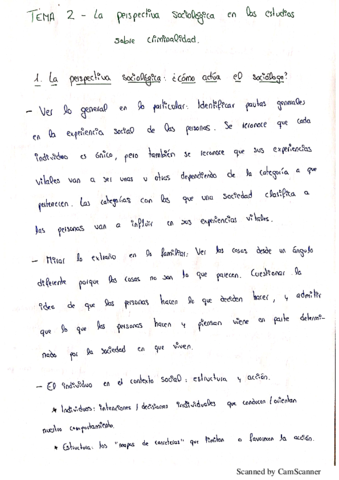 TEMA 2 - La perspectiva sociológica en los estudios
sobre criminalidad.
1. La perspectiva sociológica: ¿cómo actúa el sociólogo?
- Ver lo general en lo particular: Identificar pautas generales
en la experiencia social de las personas. Se reconoce que cada
individuo es único, pero también se reconoce que sus experiencias
vitales van a ser unas u otras dependiendo de la categoría a que
pertenecen. Las categorías con las que una sociedad clasifica a
las personas van a influir en sus experiencias vitales.
- Mirar lo extraño en lo familiar: Ver las cosas desde un ángulo
diferente porque las cosas no son lo que parecen. Cuestionar la
idea de que las personas hacen lo que deciden hacer, y admitir
que lo que las personas hacen y piensan viene en parte determi-
nado por la sociedad en que viven.
- El individuo en el contexto social: estructura y acción.
* Individuos: intenciones / decisiones individuales que conducen / orientan
nuestro comportamiento.
* Estructura: los "mapas de carreteras" que limitan o favorecen la acción.
Scanned by CamScanner